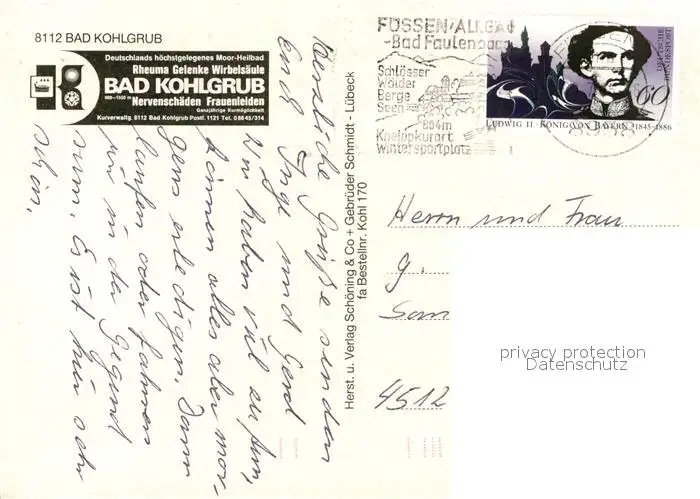 8112 BAD KOHLGRUB
Deutschlands höchstgelegenes Moor-Heilbad
Rheuma Gelenke Wirbelsäule
BAD KOHLGRUB
900–1550 m Nervenschäden Frauenleiden
Ganzjährige Kurmöglichkeit
Kurverwaltg. 8112 Bad Kohlgrub Postf. 1121 Tel. 08845/314
Herzliche Grüße senden
Euch Inge und Gerd
Wir haben viel zu tun,
können alles aber mor-
gens erledigen. Dann
laufen oder fahren
wir in der Gegend
rum. Es ist hier sehr
schön.
Herst. u. Verlag Schöning & Co + Gebrüder Schmidt - Lübeck
fa Bestellnr. Kohl 170
FÜSSEN/ALLGÄU
-Bad Faulenbach
Schlösser
Wälder
Berge
Seen
804m
Kneippkurort
Wintersportplatz
DEUTSCHE
BUNDESPOST
60
LUDWIG II · KÖNIG VON BAYERN · 1845-1886
Herrn und Frau
G.
San
4512
privacy protection
Datenschutz